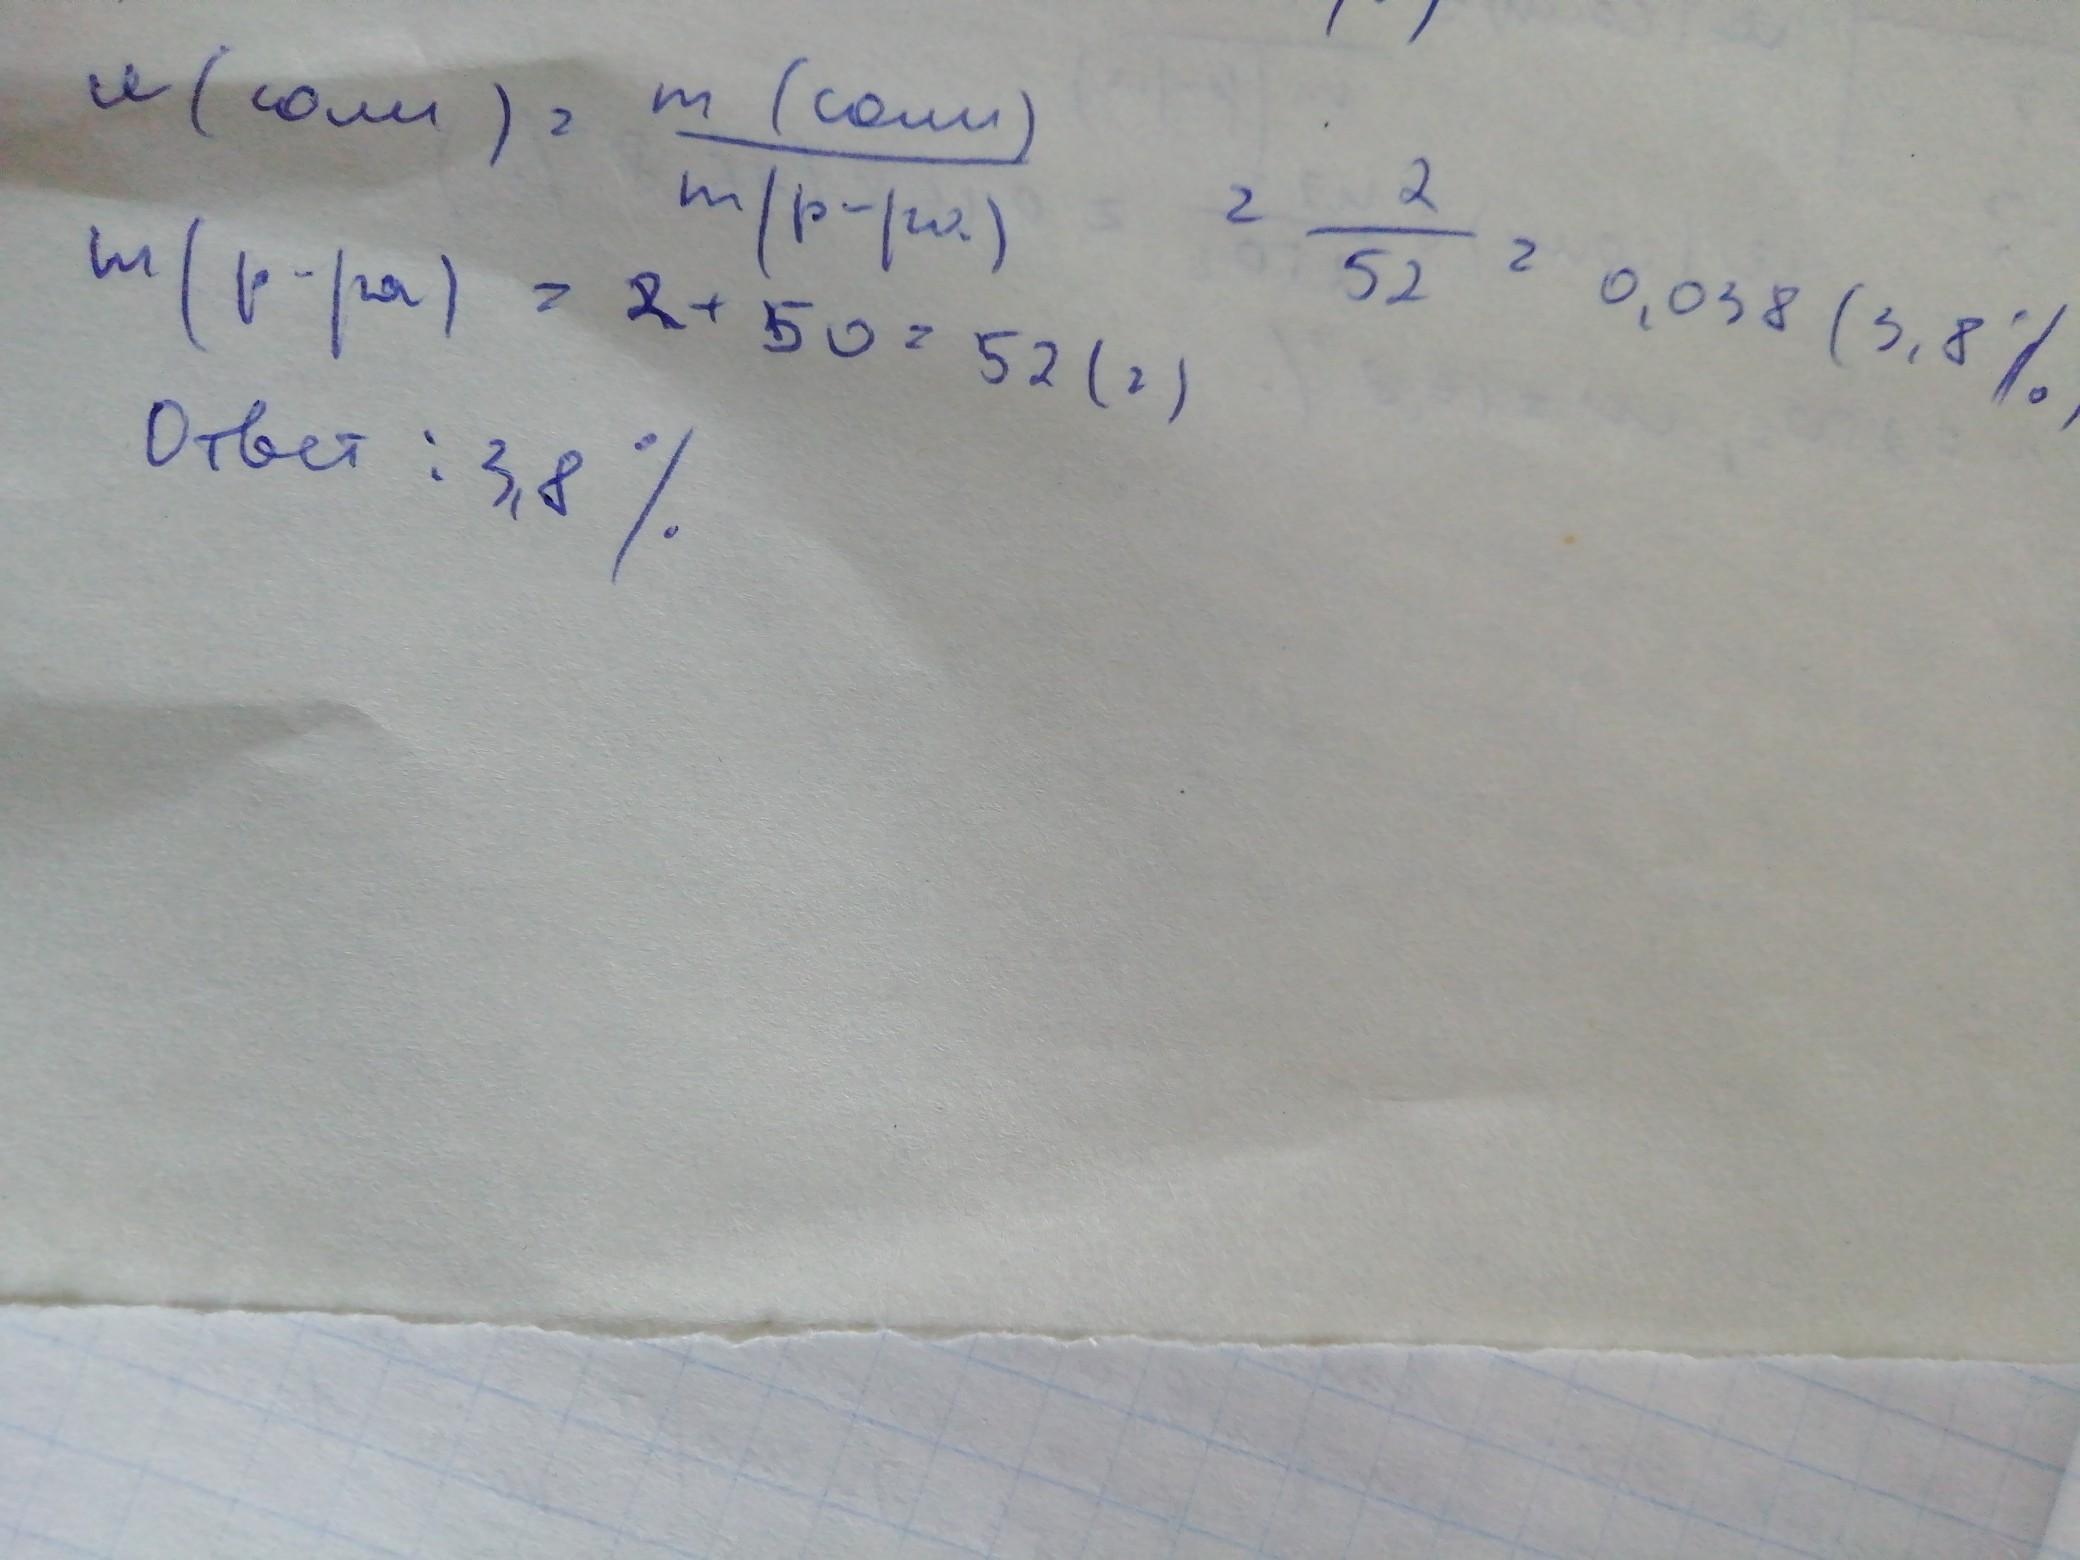 w(соли) = m (соли) / m(р-ра) = 2 / 52 = 0,038 (3,8%)
m(р-ра) = 2 + 50 = 52 (г)
Ответ : 3,8 %